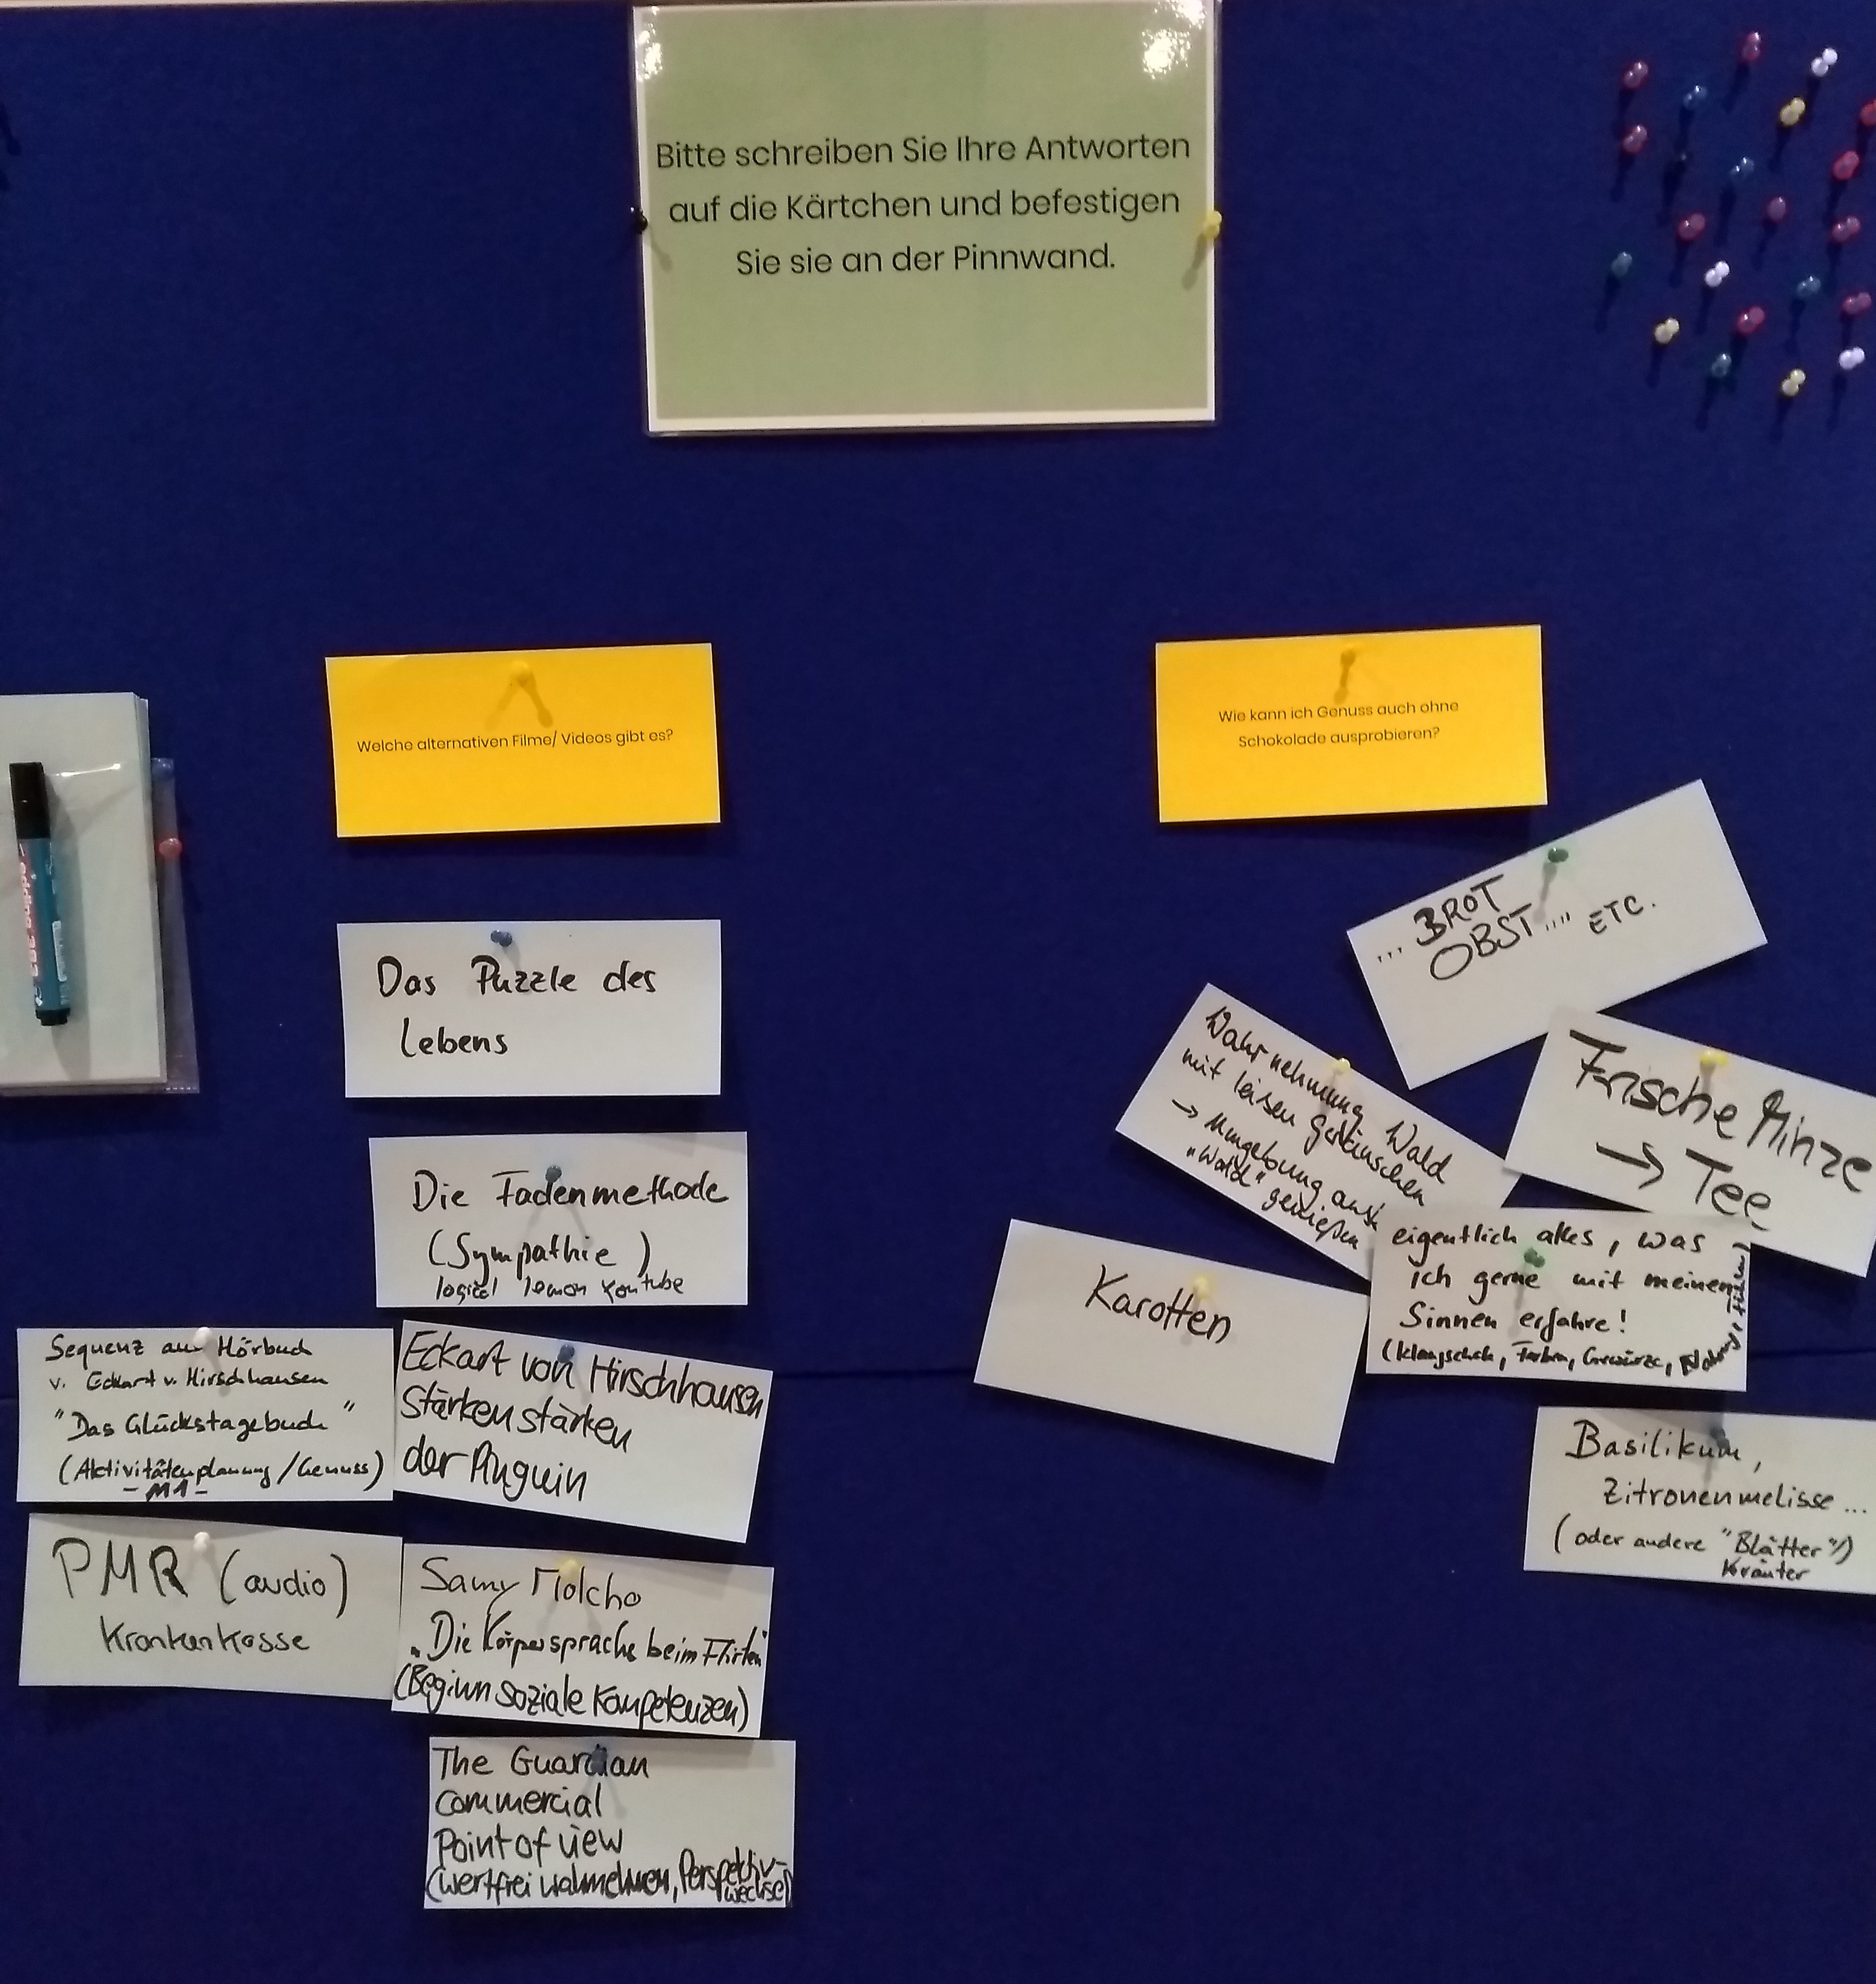 Bitte schreiben Sie Ihre Antworten
auf die Kärtchen und befestigen
Sie sie an der Pinnwand.
Welche alternativen Filme/ Videos gibt es?
Das Puzzle des
Lebens
Die Fadenmethode
(Sympathie)
logical lemon youtube
Sequenz aus Hörbuch
v. Eckart v. Hirschhausen
"Das Glückstagebuch"
(Aktivitätenplanung/Genuss)
- M1 -
Eckart von Hirschhausen
Stärken stärken
der Pinguin
PMR (audio)
Krankenkasse
Samy Molcho
„Die Körpersprache beim Flirten"
(Beginn soziale Kompetenzen)
The Guardian
commercial
Point of view
(wertfrei wahrnehmen, Perspektiv-
wechsel)
Wie kann ich Genuss auch ohne
Schokolade ausprobieren?
... BROT
OBST ...." ETC.
Wahrnehmung Wald
mit leisen Geräuschen
→ Umgebung auch
"Wald" genießen
Frische Minze
→ Tee
Karotten
eigentlich alles, was
ich gerne mit meinen
Sinnen erfahre!
(Klangschale, Farben, Gewürze,
Basilikum,
Zitronenmelisse ...
(oder andere "Blätter")
Kräuter
edding